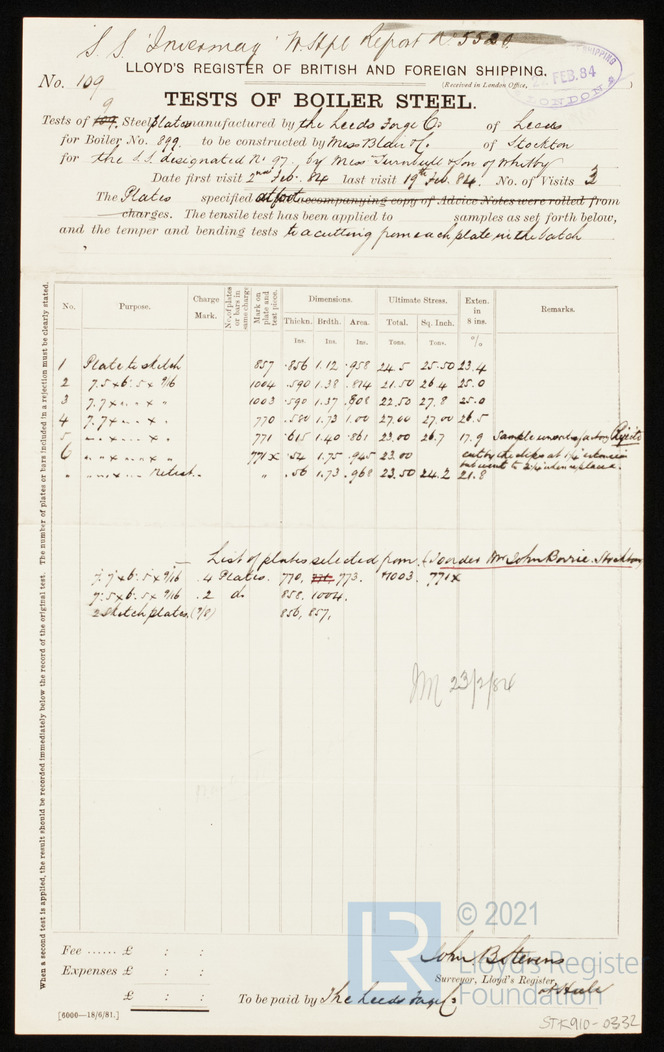 S.S. 'Invermay' W. Hpl Report No. 5520.
LLOYD'S REGISTER OF BRITISH AND FOREIGN SHIPPING.
FEB. 84
LONDON
No. 109
(Received in London Office, )
TESTS OF BOILER STEEL.
9
Tests of 109. Steel Plates manufactured by the Leeds Forge Co of Leeds
for Boiler No. 899. to be constructed by Mess Blair & Co. of Stockton
for the S.S. designated No. 97. by Mess Turnbull & Son of Whitby
Date first visit 2nd Feb. 84 last visit 19th Feb. 84. No. of Visits 3
The Plates specified at foot accompanying copy of Advice Notes were rolled from
charges. The tensile test has been applied to samples as set forth below,
and the temper and bending tests to a cutting from each plate in the batch
When a second test is applied, the result should be recorded immediately below the record of the original test. The number of plates or bars included in a rejection must be clearly stated.
No. Purpose. Charge Mark. No. of plates or bars in same charge Mark on plate and test piece. Dimensions. Ultimate Stress. Exten. in 8 ins. Remarks.
Thickn. Brdth. Area. Total. Sq. Inch.
Ins. Ins. Ins. Tons. Tons. %
1 Plate to sketch 857 .856 1.12 .958 24.5 25.50 23.4
2 7.5 x 6.5 x 9/16 1004 .590 1.38 .814 21.50 26.4 25.0
3 7.7 x " " x " 1003 .590 1.37 .808 22.50 27.8 25.0
4 7.7 x " " x " 770 .580 1.73 1.00 27.00 27.00 26.5
5 " " " x " 771 .615 1.40 .861 23.00 26.7 17.9 Sample unsatisfactory Rejected
6 " " x " " x " 771x .54 1.75 .945 23.00
" " " x " " x " Retest " " .56 1.73 .968 23.50 24.2 21.8
List of plates selected from, to order Wm John Borrie Stockton
7.7 x 6.5 x 9/16 4 Plates. 770, 773. 1003. 771x
7.5 x 6.5 x 9/16 2 do 858, 1004.
2 Sketch plates (7/8) 856, 857,
23/2/84
Fee ...... £ : :
Expenses £ : :
£ : :
John B Stevens
Surveyor, Lloyd's Register,
at Hull
To be paid by The Leeds Forge Co
[6000—18/6/81.]
LR
© 2021
Lloyd's Register
Foundation
STK910-0332